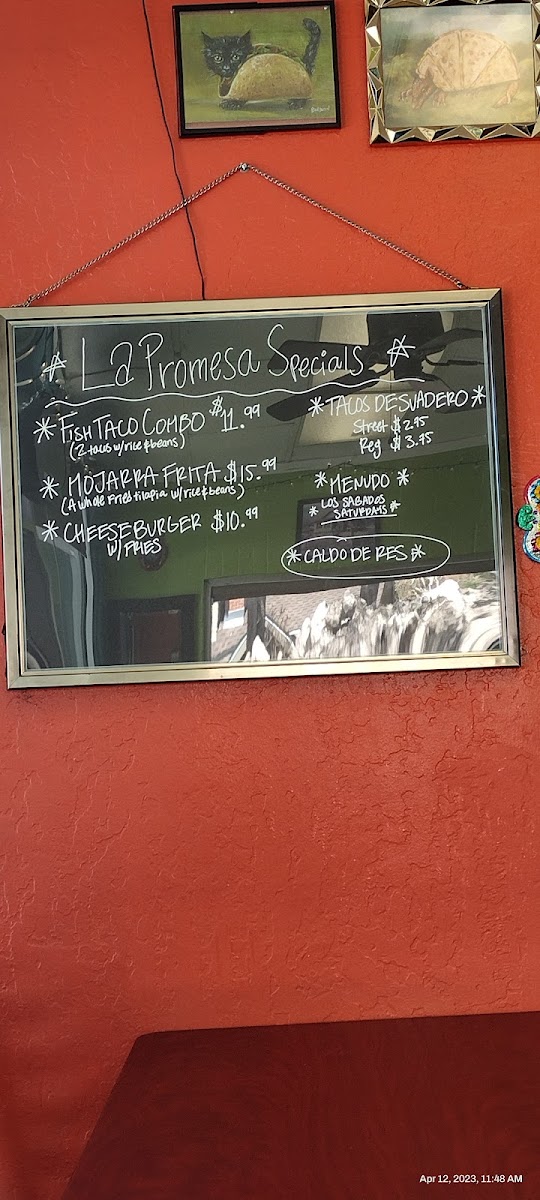 La Promesa Specials
* Fish Taco Combo $11.99
(2 tacos w/rice & beans)
* Mojarra Frita $15.99
(A whole fried tilapia w/rice & beans)
* Cheeseburger $10.99
w/ Fries
* Tacos De Suadero *
Street $2.95
Reg $3.95
* Menudo *
* Los Sabados
Saturdays *
* Caldo De Res *
Apr 12, 2023, 11:48 AM